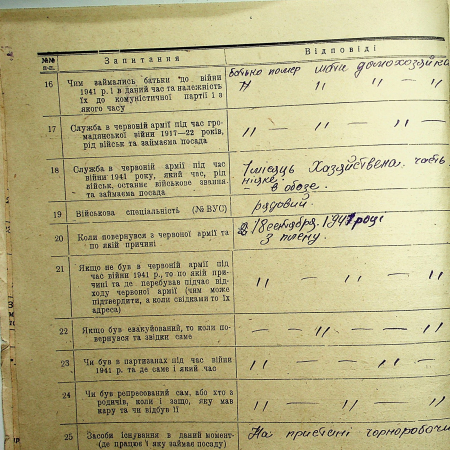 №№ п-п. Запитання Відповіді
16 Чим займались батьки до війни
1941 р. і в даний час та належність
їх до комуністичної партії і з
якого часу
Батько помер мати домохозяйка
" — " — "
17 Служба в червоній армії під час гро-
мадянської війни 1917—22 років,
рід військ та займаєма посада
" — " — "
18 Служба в червоній армії під час
війни 1941 року, який час, рід
військ, останнє військове звання
та займаєма посада
1 місяць Хозяйствена. часть
в обозе.
рядовий.
19 Військова спеціальність (№ ВУС)
20 Коли повернувся з червоної армії та
по якій причині
18 сентября. 1941 році
З плену.
21 Якщо не був в червоній армії під
час війни 1941 р., то по якій при-
чині та де перебував підчас від-
ходу червоної армії (чим може
підтвердити, а коли свідками то їх
адреса)
" — " — "
22 Якщо був евакуйований, то коли по-
вернувся та звідки саме
— " — "
23 Чи був в партизанах під час війни
1941 р. та де саме і який час
" — " — "
24 Чи був репресований сам, або хто з
родичів, коли і защо, яку мав
кару та чи відбув її
" — " — "
25 Засоби існування в даний момент
(де працює і яку займає посаду)
На пристані чорноробочи